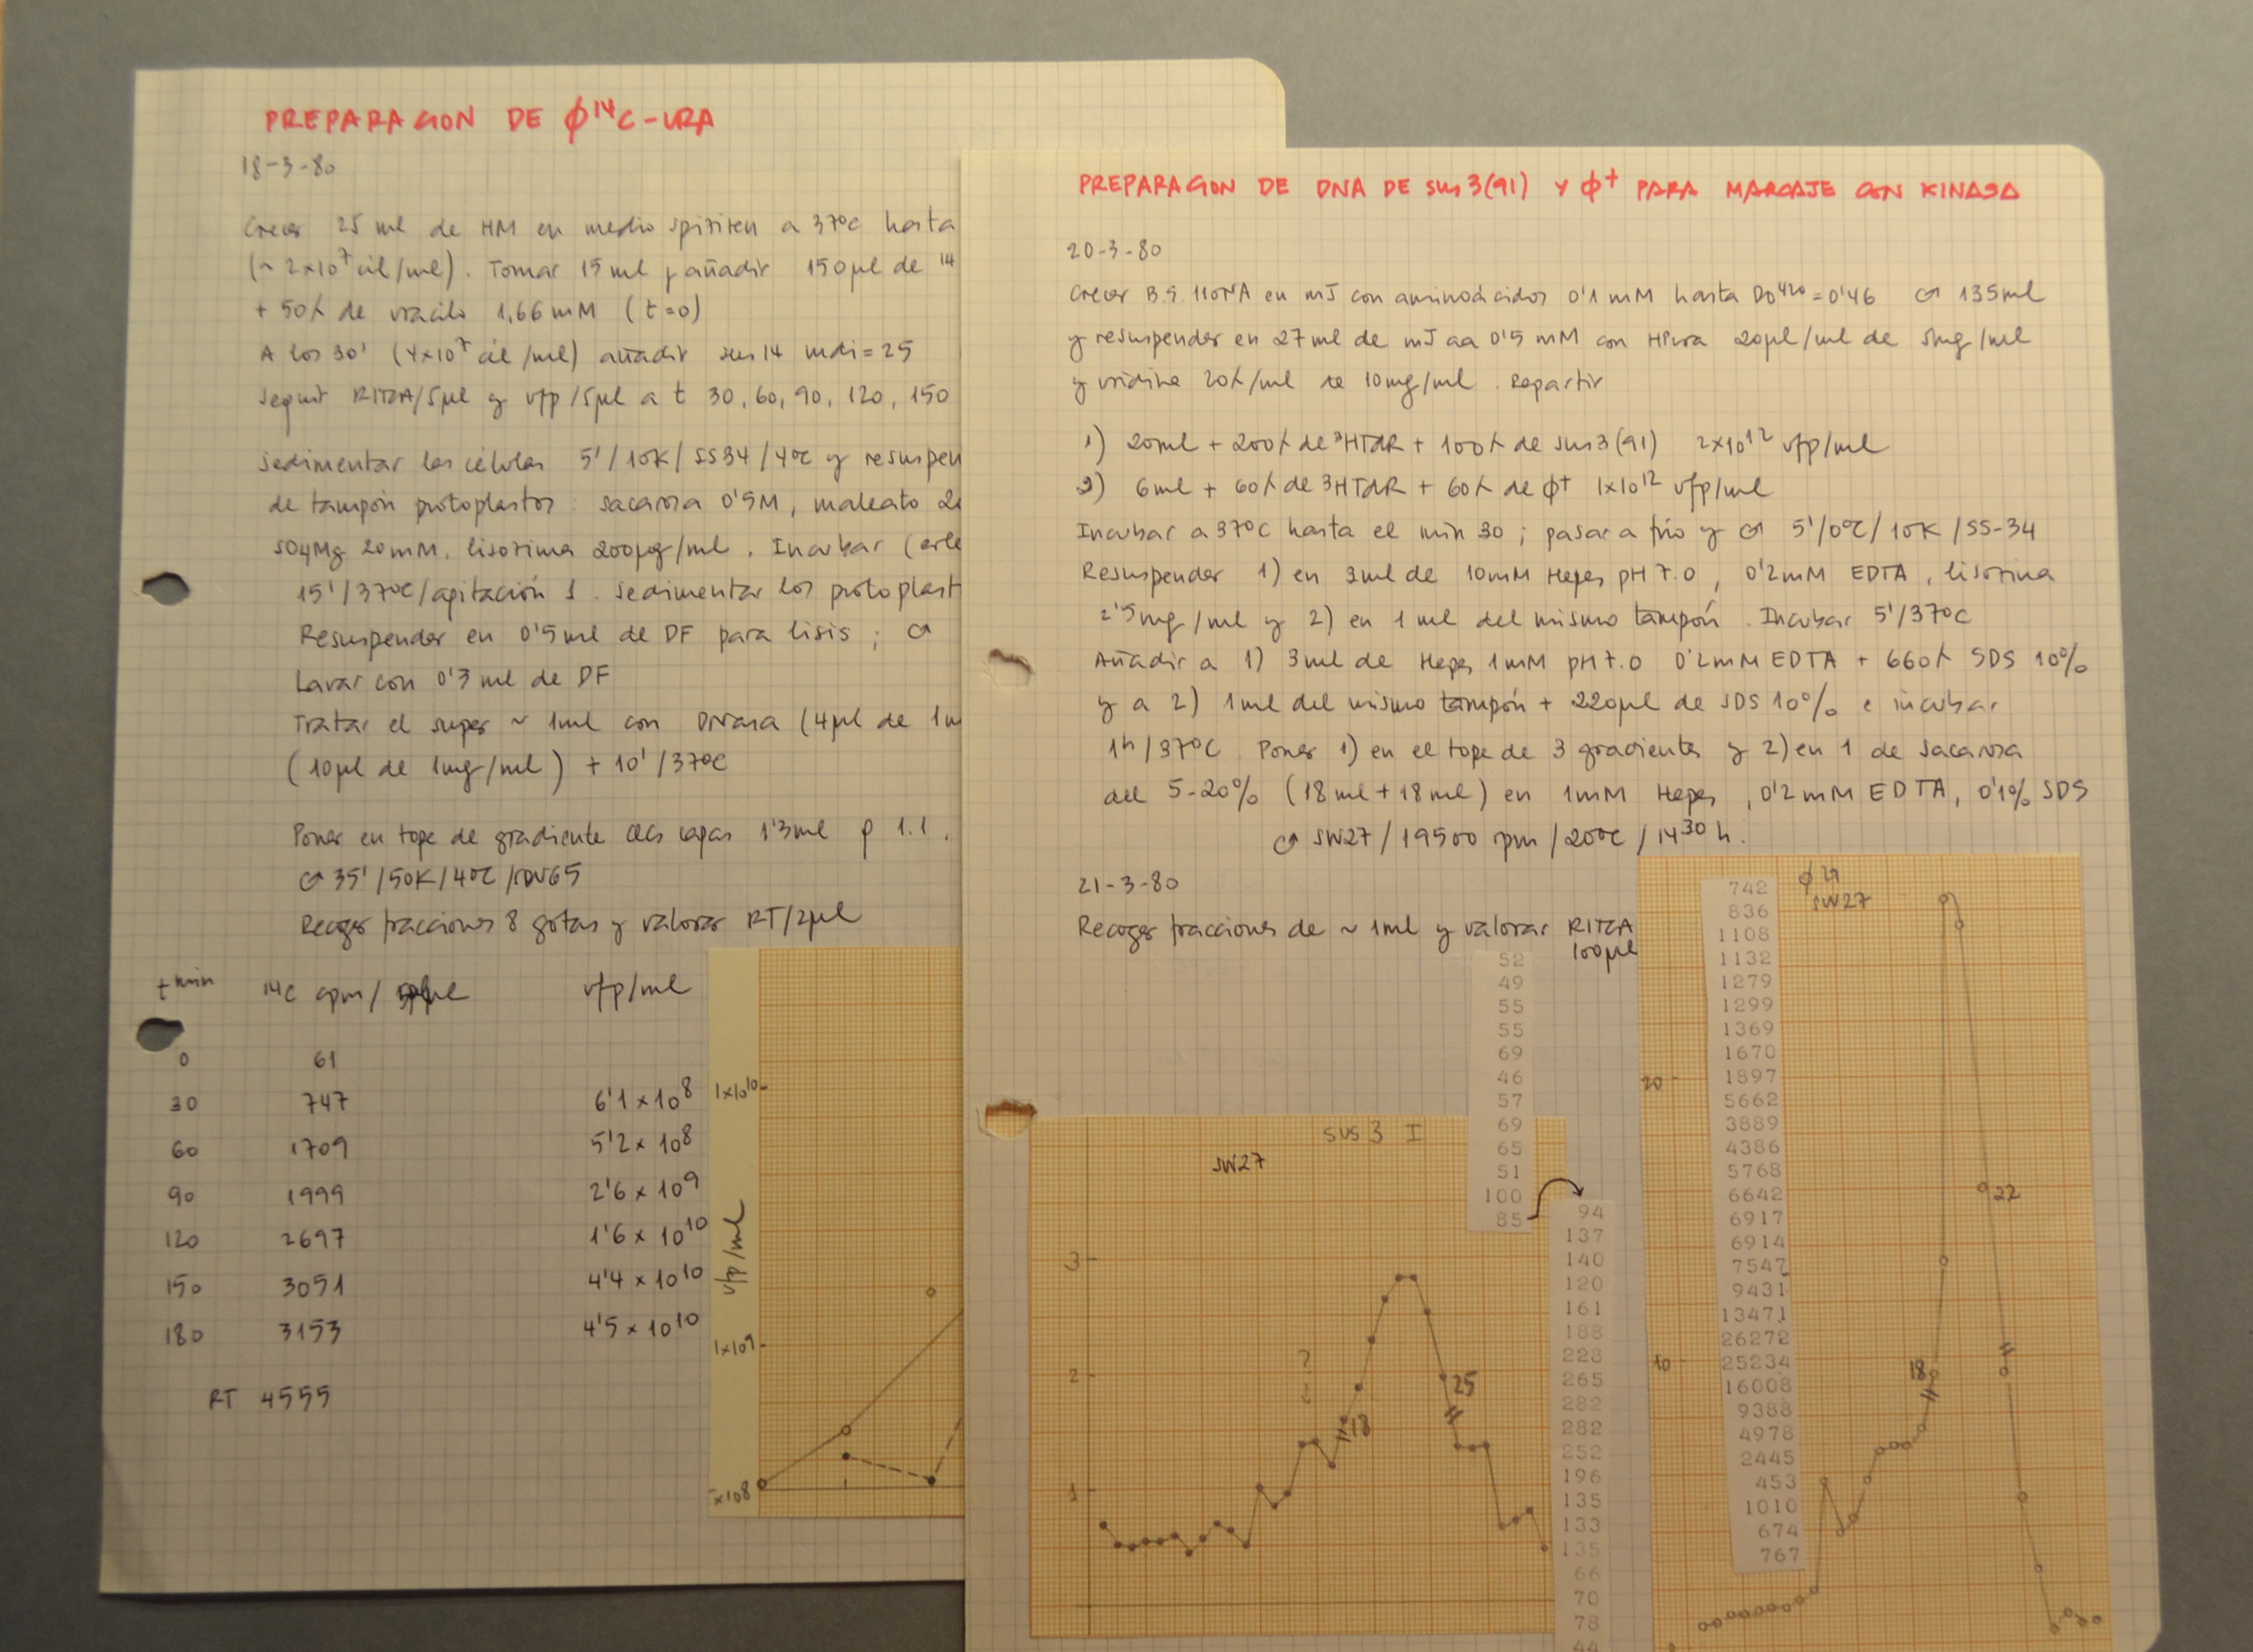 PREPARACION DE φ¹⁴C-URA
18-3-80
Crecer 25 ml de HM en medio spizizen a 37ºC hasta
(~ 2×10⁷ cél/ml). Tomar 15 ml y añadir 150 μl de ¹⁴
+ 50λ de uracilo 1,66 mM (t=0)
A los 30' (4×10⁷ cél/ml) añadir sus14 mdi=25
Seguir RITCA/5μl y ufp/5μl a t 30, 60, 90, 120, 150
Sedimentar las células 5'/10K/SS34/4ºC y resuspen
de tampón protoplastos: sacarosa 0'5M, maleato 2
SO4Mg 20mM, lisozima 200μg/ml. Incubar (erle
15'/37ºC/agitación 1. Sedimentar los protoplast
Resuspender en 0'5 ml de DF para lisis;
Lavar con 0'3 ml de DF
Tratar el super ~ 1ml con DNasa (4μl de 1m
(10μl de 1mg/ml) + 10'/37ºC
Poner en tope de gradiente capas 1'3ml ρ 1.1.
35'/50K/4ºC/SW65
Recoger fracciones 8 gotas y valorar RT/2μl
t min ¹⁴C cpm/ ufp/ml
0 61
30 747 6'1 × 10⁸
60 1709 5'2 × 10⁸
90 1999 2'6 × 10⁹
120 2697 1'6 × 10¹⁰
150 3051 4'4 × 10¹⁰
180 3153 4'5 × 10¹⁰
RT 4555
1×10¹⁰
ufp/ml
1×10⁹
×10⁸
PREPARACION DE DNA DE sus3(91) Y φ⁺ PARA MARCAJE CON KINASA
20-3-80
Crecer B.S. 110NA en mJ con aminoácidos 0'1 mM hasta DO⁴²⁰=0'46 135ml
y resuspender en 27 ml de mJ aa 0'5 mM con HPura 20μl/ml de 5mg/ml
y uridina 20λ/ml de 10mg/ml. Repartir
1) 20ml + 200λ de ³HTdR + 100λ de sus3(91) 2×10¹² ufp/ml
2) 6ml + 60λ de ³HTdR + 60λ de φ⁺ 1×10¹² ufp/ml
Incubar a 37ºC hasta el min 30; pasar a frío y 5'/0ºC/10K/SS-34
Resuspender 1) en 3ml de 10mM Hepes pH 7.0, 0'2mM EDTA, lisozima
2'5mg/ml y 2) en 1 ml del mismo tampón. Incubar 5'/37ºC
Añadir a 1) 3ml de Hepes 1mM pH 7.0 0'2mM EDTA + 660λ SDS 10%
y a 2) 1ml del mismo tampón + 220μl de SDS 10% e incubar
1h/37ºC. Poner 1) en el tope de 3 gradientes y 2) en 1 de sacarosa
del 5-20% (18ml+18ml) en 1mM Hepes, 0'2mM EDTA, 0'1% SDS
SW27/19500 rpm/20ºC/14³⁰ h.
21-3-80
Recoger fracciones de ~ 1ml y valorar RITCA
100μl
52
49
55
55
69
46
57
69
65
51
100
85
94
137
140
120
161
188
228
265
282
282
252
196
135
133
135
66
70
78
44
SUS 3 I
SW27
3
2
1
?
18
25
φ29
SW27
742
836
1108
1132
1279
1299
1369
1670
1897
5662
3889
4386
5768
6642
6917
6914
7547
9431
13471
26272
25234
16008
9388
4978
2445
453
1010
674
767
20
10
22
18